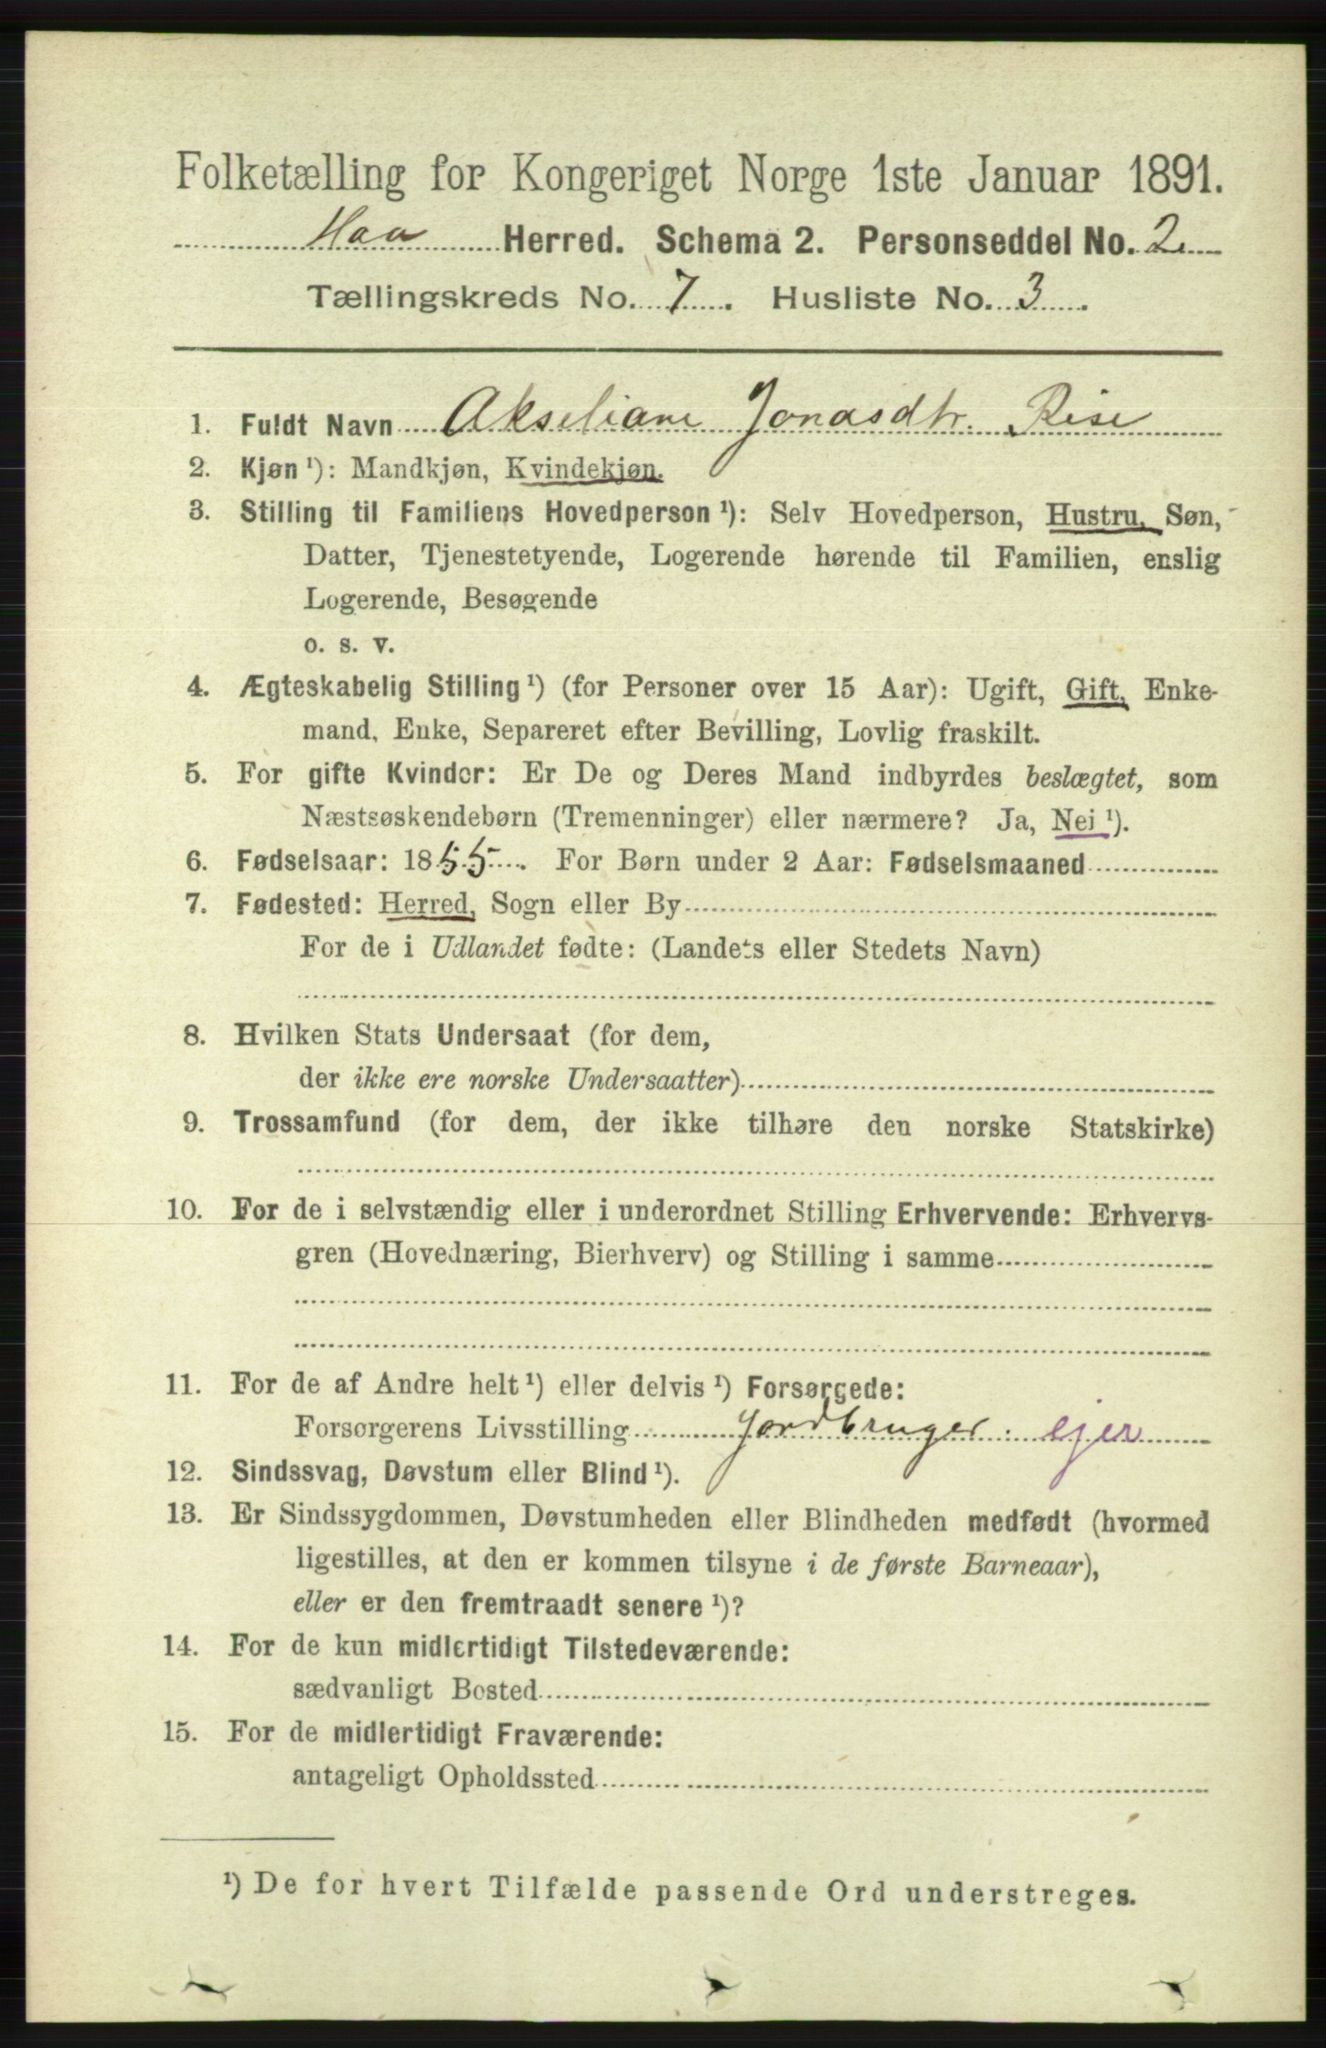 Folketælling for Kongeriget Norge 1ste Januar 1891.
Haa Herred. Schema 2. Personseddel No. 2
Tællingskreds No. 7. Husliste No. 3.
1. Fuldt Navn Akseliane Jonasdtr. Rise
2. Kjøn ¹): Mandkjøn, Kvindekjøn.
3. Stilling til Familiens Hovedperson ¹): Selv Hovedperson, Hustru, Søn,
Datter, Tjenestetyende, Logerende hørende til Familien, enslig
Logerende, Besøgende
o. s. v.
4. Ægteskabelig Stilling ¹) (for Personer over 15 Aar): Ugift, Gift, Enke-
mand, Enke, Separeret efter Bevilling, Lovlig fraskilt.
5. For gifte Kvinder: Er De og Deres Mand indbyrdes beslægtet, som
Næstsøskendebørn (Tremenninger) eller nærmere? Ja, Nei ¹).
6. Fødselsaar: 1855. For Børn under 2 Aar: Fødselsmaaned
7. Fødested: Herred, Sogn eller By
For de i Udlandet fødte: (Landets eller Stedets Navn)
8. Hvilken Stats Undersaat (for dem,
der ikke ere norske Undersaatter)
9. Trossamfund (for dem, der ikke tilhøre den norske Statskirke)
10. For de i selvstændig eller i underordnet Stilling Erhvervende: Erhvervs-
gren (Hovednæring, Bierhverv) og Stilling i samme
11. For de af Andre helt ¹) eller delvis ¹) Forsørgede:
Forsørgerens Livsstilling Jordbruger. ejer
12. Sindssvag, Døvstum eller Blind ¹).
13. Er Sindssygdommen, Døvstumheden eller Blindheden medfødt (hvormed
ligestilles, at den er kommen tilsyne i de første Barneaar),
eller er den fremtraadt senere ¹)?
14. For de kun midlertidigt Tilstedeværende:
sædvanligt Bosted
15. For de midlertidigt Fraværende:
antageligt Opholdssted
¹) De for hvert Tilfælde passende Ord understreges.